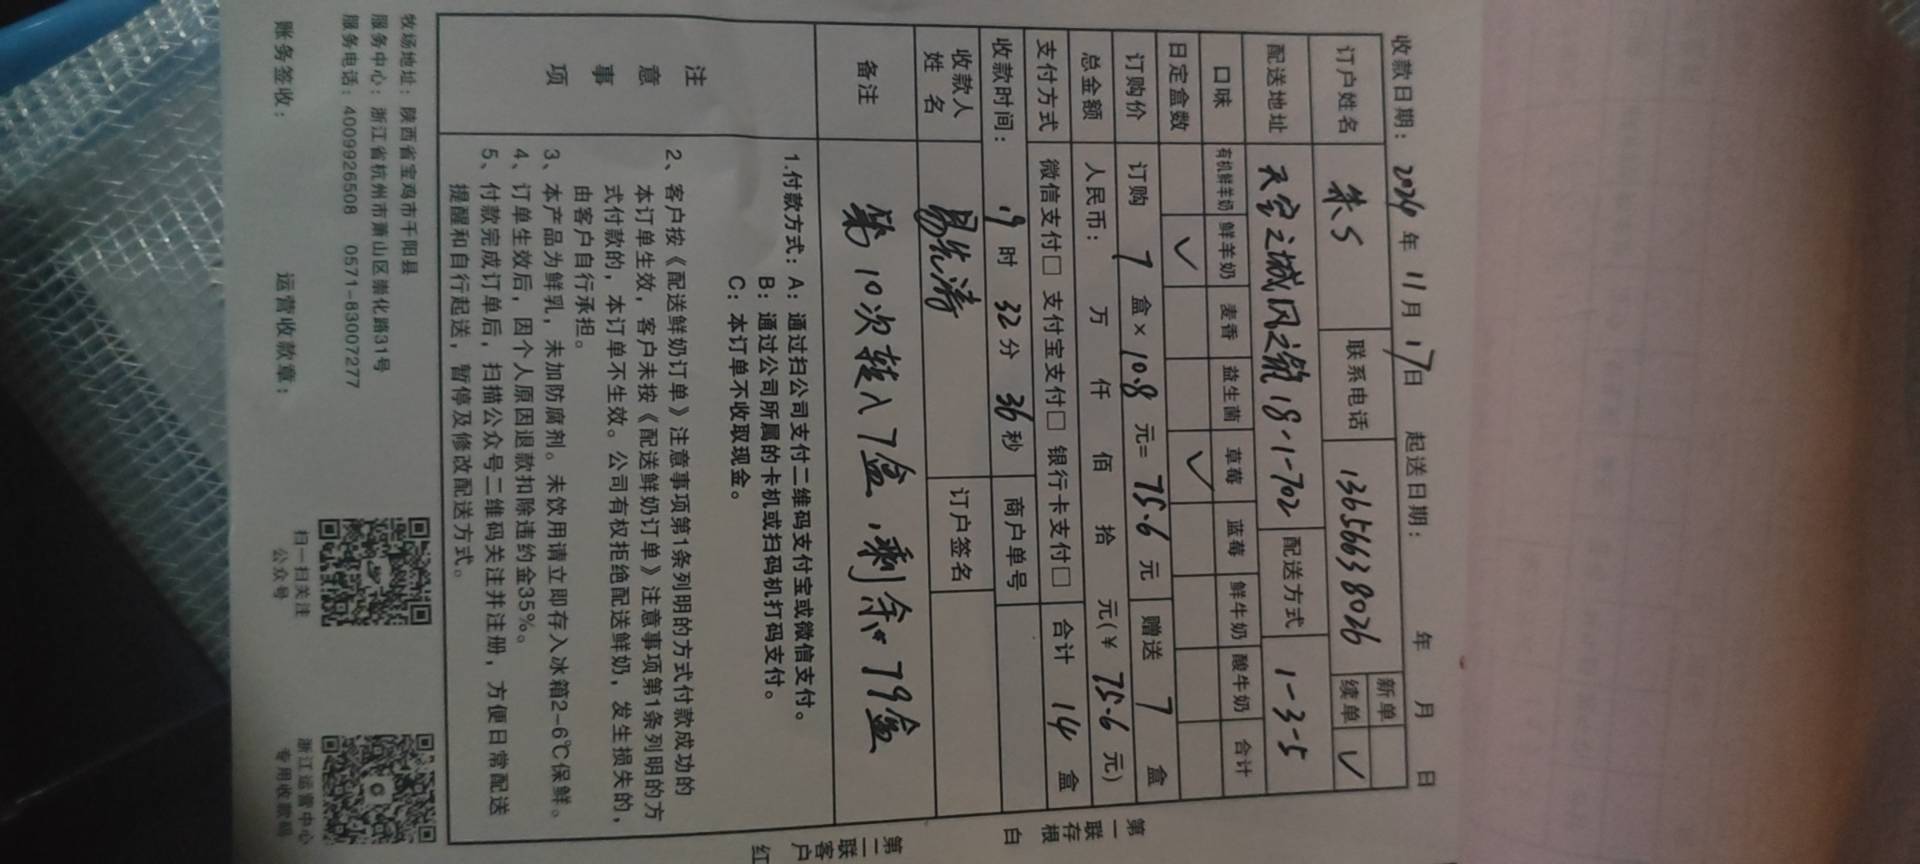 收款日期：2024年11月17日 起送日期： 年 月 日
订户姓名 朱S 联系电话 13656638026 新单
续单 ✓
配送地址 天空之城风之翼18-1-702 配送方式 1-3-5
口味 有机鲜羊奶 鲜羊奶 麦香 益生菌 草莓 蓝莓 鲜牛奶 酸牛奶 合计
日定盒数 ✓ ✓
订购价 订购 7 盒×10.8元=75.6元 赠送 7 盒
总金额 人民币： 万 仟 佰 拾 元(¥ 75.6 元)
支付方式 微信支付□ 支付宝支付□ 银行卡支付□ 合计 14 盒
收款时间： 19时32分36秒 商户单号
收款人姓名 易先涛 订户签名
备注 第10次转入7盒，剩余79盒
注意事项
1.付款方式：A：通过扫公司支付二维码支付宝或微信支付。
B：通过公司所属的卡机或扫码机打码支付。
C：本订单不收取现金。
2、客户按《配送鲜奶订单》注意事项第1条列明的方式付款成功的
本订单生效，客户未按《配送鲜奶订单》注意事项第1条列明的方
式付款的，本订单不生效。公司有权拒绝配送鲜奶，发生损失的，
由客户自行承担。
3、本产品为鲜乳，未加防腐剂。未饮用请立即存入冰箱2-6℃保鲜。
4、订单生效后，因个人原因退款扣除违约金35%。
5、付款完成订单后，扫描公众号二维码关注并注册，方便日常配送
提醒和自行起送，暂停及修改配送方式。
牧场地址：陕西省宝鸡市千阳县
服务中心：浙江省杭州市萧山区崇化路31号
服务电话：4009926508 0571-83007277
扫一扫关注
公众号
浙江运营中心
专用收款码
账务签收： 运营收款章：
第一联存根 白
第二联客户 红